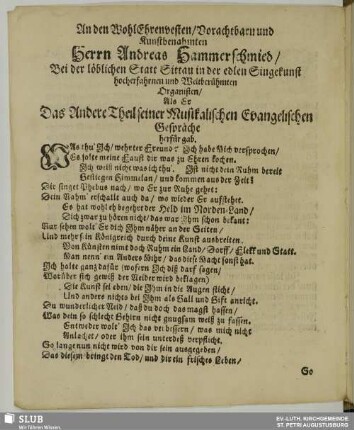 An den WohlEhrenvesten/Vorachtbarn und
Kunstbenahmten
Herrn Andreas Hammerschmied/
Bei der löblichen Statt Sittau in der edlen Singekunst
hocherfahrnen und Weitberühmten
Organisten/
Als Er
Das Andere Theil seiner Musikalischen Evangelischen
Gespräche
herfür gab.
WAs thu' Ich/wehrter Freund? Ich habe Dich versprochen/
Es solte meine Faust dir was zu Ehren kochen.
Ich weiß nicht was ich thu'. Ist nicht dein Ruhm bereit
Gestiegen Himmelan/ und kommen aus der Zeit?
Dir singet Phebus nach/ wo Er zur Ruhe gehet:
Dein Nahm' erschallt auch da/ wo wieder Er aufstehet.
Es hat wohl eh begehrt der Held im Norden-Land/
Dich zwar zu hören nicht/das war Ihm schon bekant:
Nur sehen wolt' Er dich Ihm näher an der Seiten/
Und mehr sein Königreich durch deine Kunst ausbreiten.
Von Künsten nimt doch Ruhm ein Land/ Dorff/ Flekk und Statt.
Man nenn' ein Anders Mihr/ das diese Macht sonst hat.
Ich halte gantz dafür (wofern Ich diß darf sagen/
Warüber sich gewiß der Neider wird beklagen)
Die Kunst sei eben/ die Ihm in die Augen sticht/
Und anders nichts bei Ihm als Gall und Gift anricht.
Du wunderlicher Neid/ daß du doch das magst hassen/
Was dein so schlecht Gehirn nicht gnugsam weiß zu fassen.
Entweder wolt' Ich das verbessern/ was mich nicht
Anlachet/ oder ihm sein unterdeß verpflicht.
So lange nun nicht wird von dir sein ausgegeben/
Das diesem bringt den Tod/ und dir ein frisches Leben/
So
SLUB
Wir führen Wissen.
EV.-LUTH. KIRCHGEMEINDE
ST. PETRI AUGUSTUSBURG